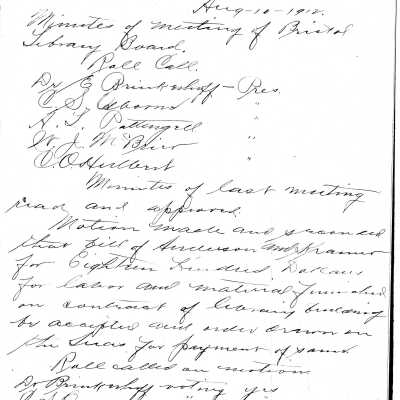 Aug-10-1912.
Minutes of meeting of Bristol
Library Board.
Roll Call.
Dr E Brinkerhoff - Pres
C S Osborn "
A. L. Pattengell "
W. J. McBrier "
C. O. Hulbert "
Minutes of last meeting
read and approved.
Motion made and seconded
that bill of Anderson and Kramer
for Eighteen Hundred Dollars
for labor and material furnished
on contract of library building
be accepted and order drawn on
the for payment of same.
Roll called on motion
Dr Brinkerhoff voting yes